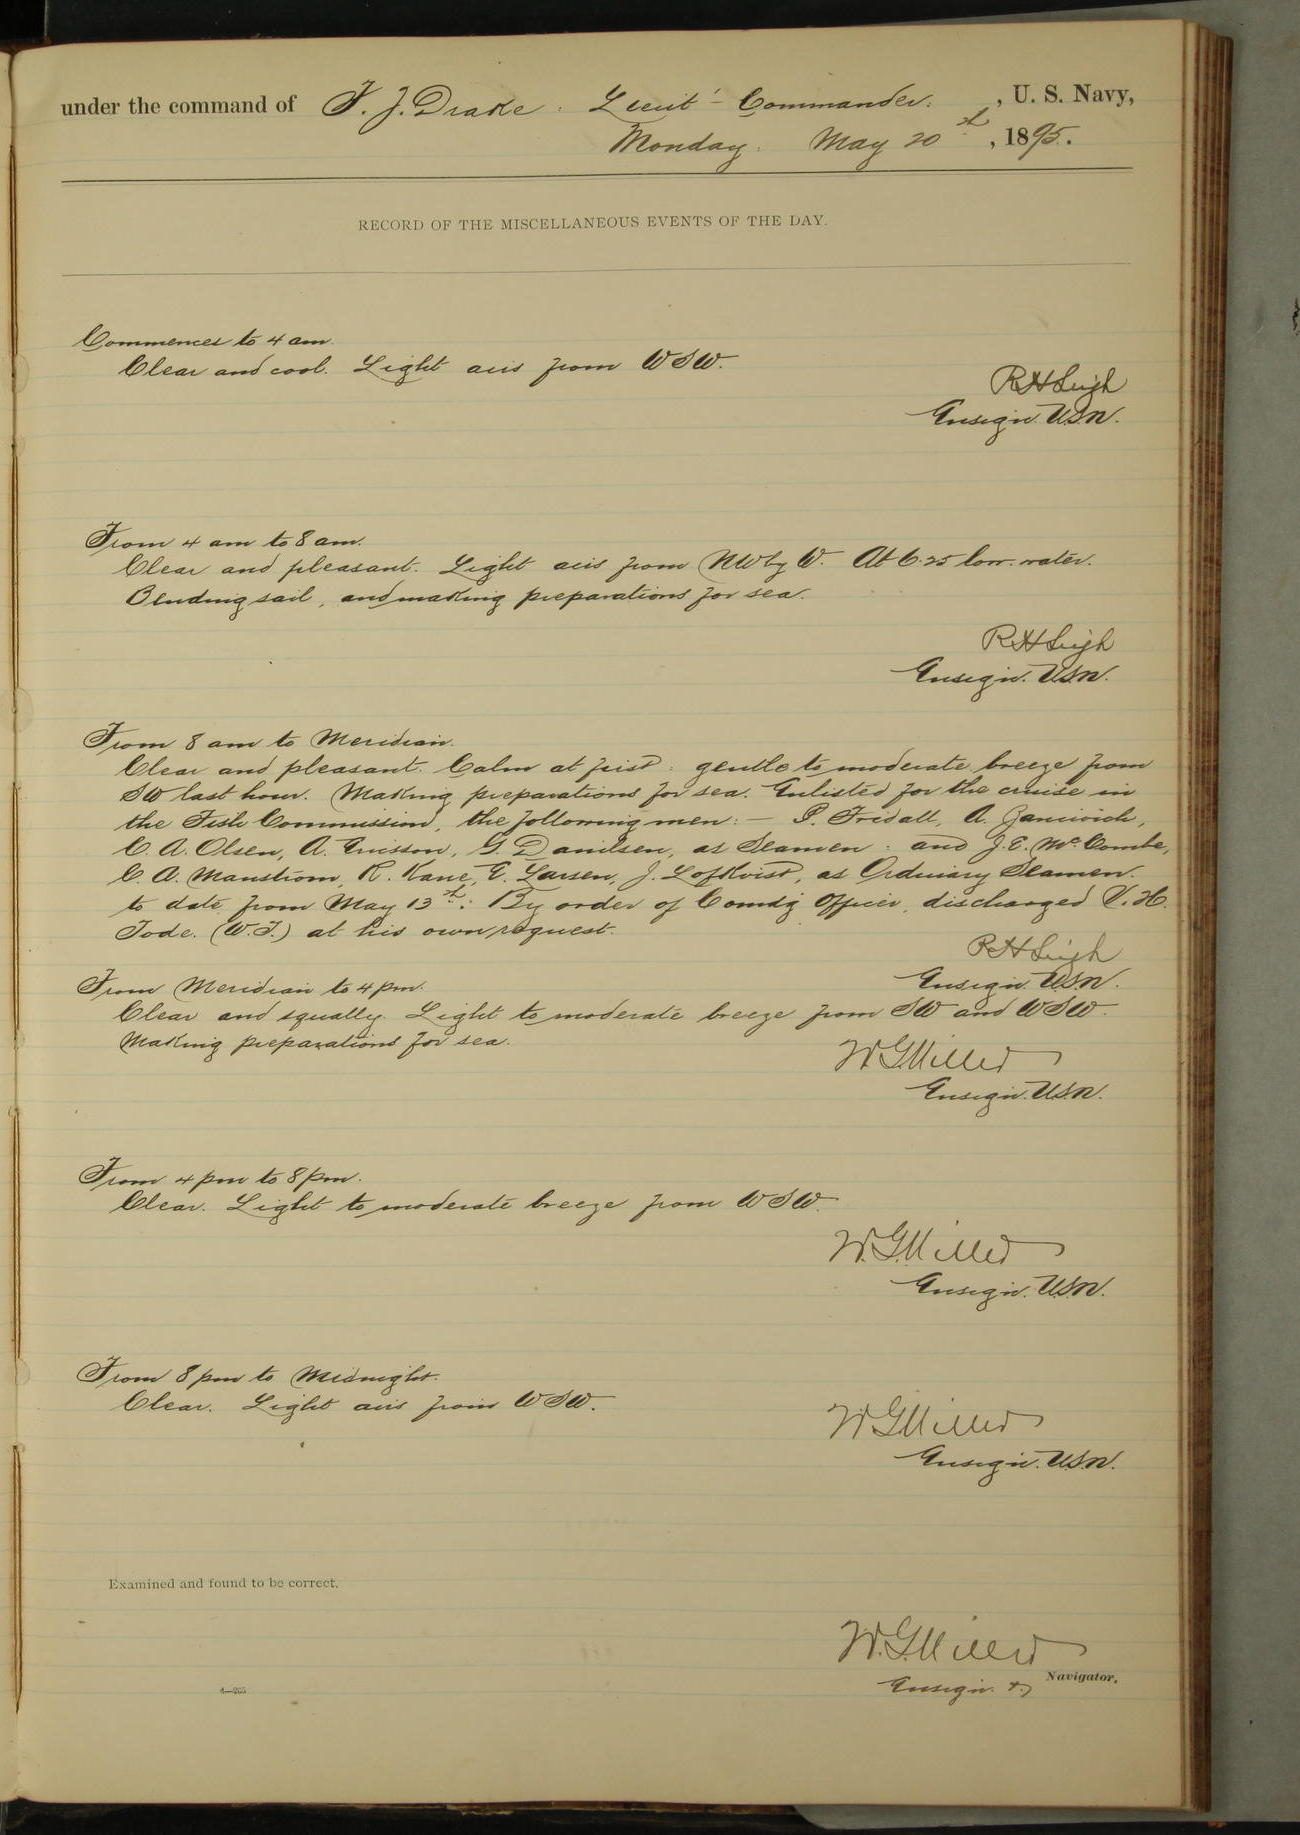 under the command of F. J. Drake. Lieut - Commander. , U. S. Navy,
Monday. May 20th, 1895.
RECORD OF THE MISCELLANEOUS EVENTS OF THE DAY.
Commences to 4 am.
Clear and cool. Light airs from WSW.
R H Leigh
Ensign. U.S.N.
From 4 am to 8 am.
Clear and pleasant. Light airs from NW by W. At 6.25 low water.
Bending sail, and making preparations for sea.
R H Leigh
Ensign. U.S.N.
From 8 am to Meridian.
Clear and pleasant. Calm at first: gentle to moderate breeze from
SW last hour. Making preparations for sea. Enlisted for the cruise in
the Fish Commission, the following men: — P. Fridall, A. Jancovich,
C. A. Olsen, A. Ericsson, G. Danilsen, as Seamen: and J. E. McCombe,
C. A. Manstrom, R. Kane, E. Larsen, J. Lofkvist, as Ordinary Seamen.
to date from May 13th: By order of Comdg Officer, discharged V. H.
Tode. (W.T.) at his own request.
R H Leigh
Ensign U.S.N.
From Meridian to 4 pm.
Clear and squally. Light to moderate breeze from SW and WSW.
Making preparations for sea.
W. G. Miller
Ensign. U.S.N.
From 4 pm to 8 pm.
Clear. Light to moderate breeze from WSW.
W. G. Miller
Ensign. U.S.N.
From 8 pm to Midnight.
Clear. Light airs from WSW.
W. G. Miller
Ensign. U.S.N.
Examined and found to be correct.
W. G. Miller
Ensign. & Navigator.
4—205